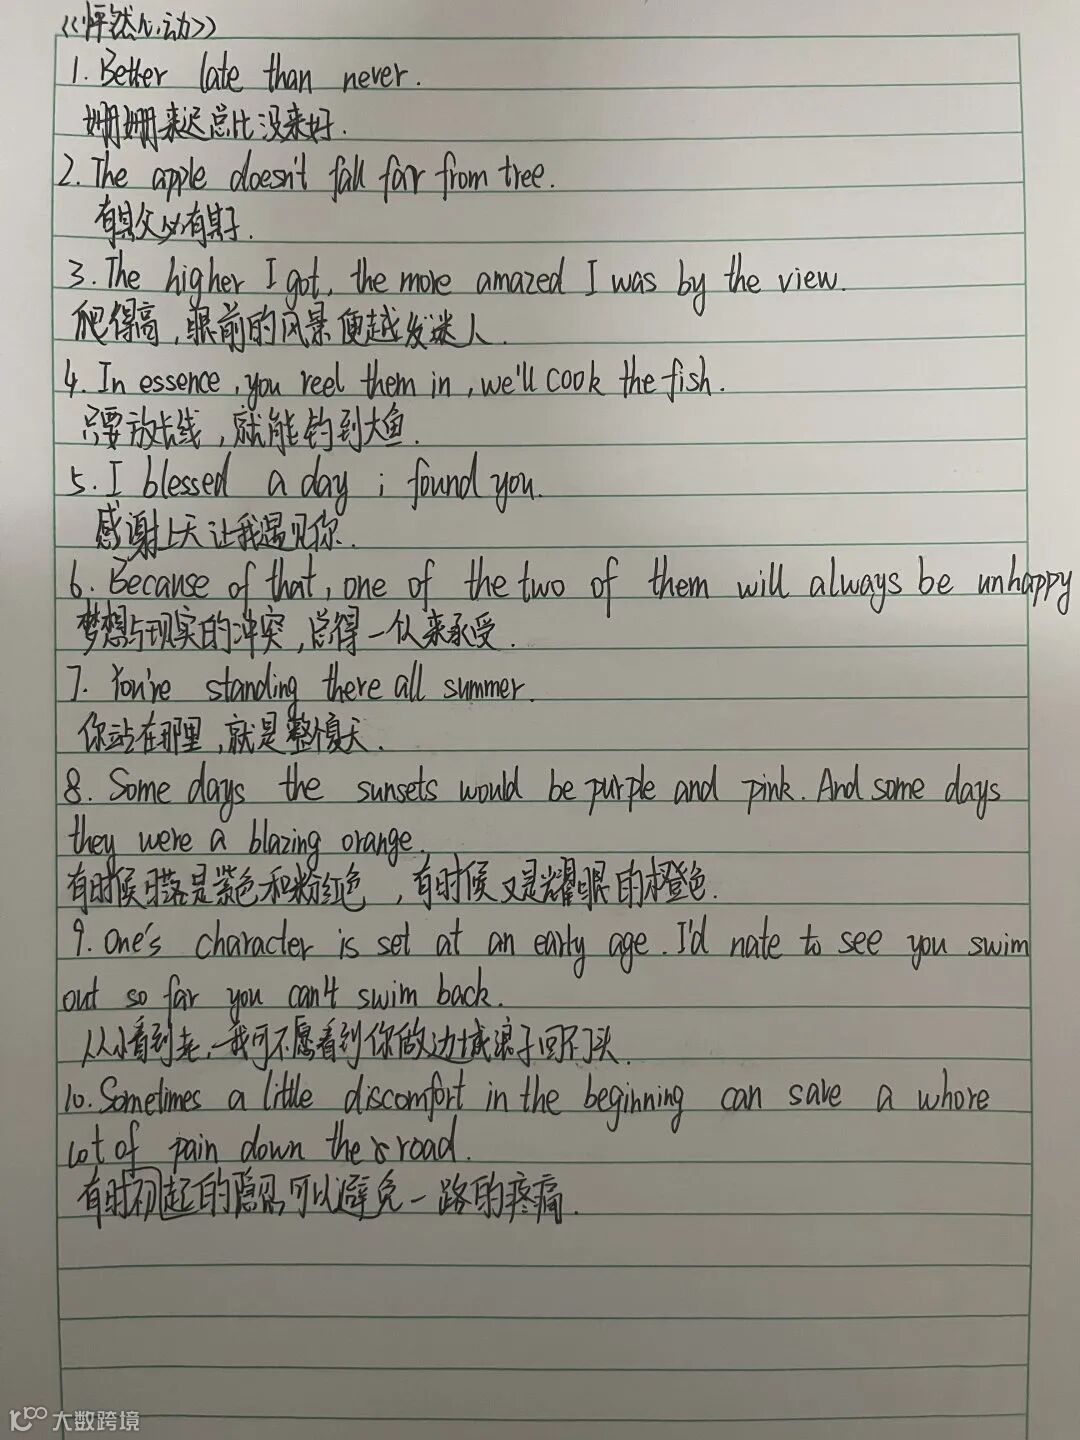 <<怦然心动>>
1. Better late than never.
姗姗来迟总比没来好.
2. The apple doesn't fall far from tree.
有其父必有其子.
3. The higher I got, the more amazed I was by the view.
爬得高,眼前的风景便越发迷人.
4. In essence, you reel them in, we'll cook the fish.
只要放长线,就能钓到大鱼.
5. I blessed a day i found you.
感谢上天让我遇见你.
6. Because of that, one of the two of them will always be unhappy
梦想与现实的冲突,总得一人来承受.
7. You're standing there all summer.
你站在那里,就是整個夏天.
8. Some days the sunsets would be purple and pink. And some days
they were a blazing orange.
有时候日落是紫色和粉红色,有时候又是耀眼的橙色.
9. One's character is set at an early age. I'd nate to see you swim
out so far you can't swim back.
从小看到老,我可不愿看到你做边城浪子回不了头.
10. Sometimes a little discomfort in the beginning can save a whore
lot of pain down the road.
有时初起的隐忍可以避免一路的疼痛.
大数跨境